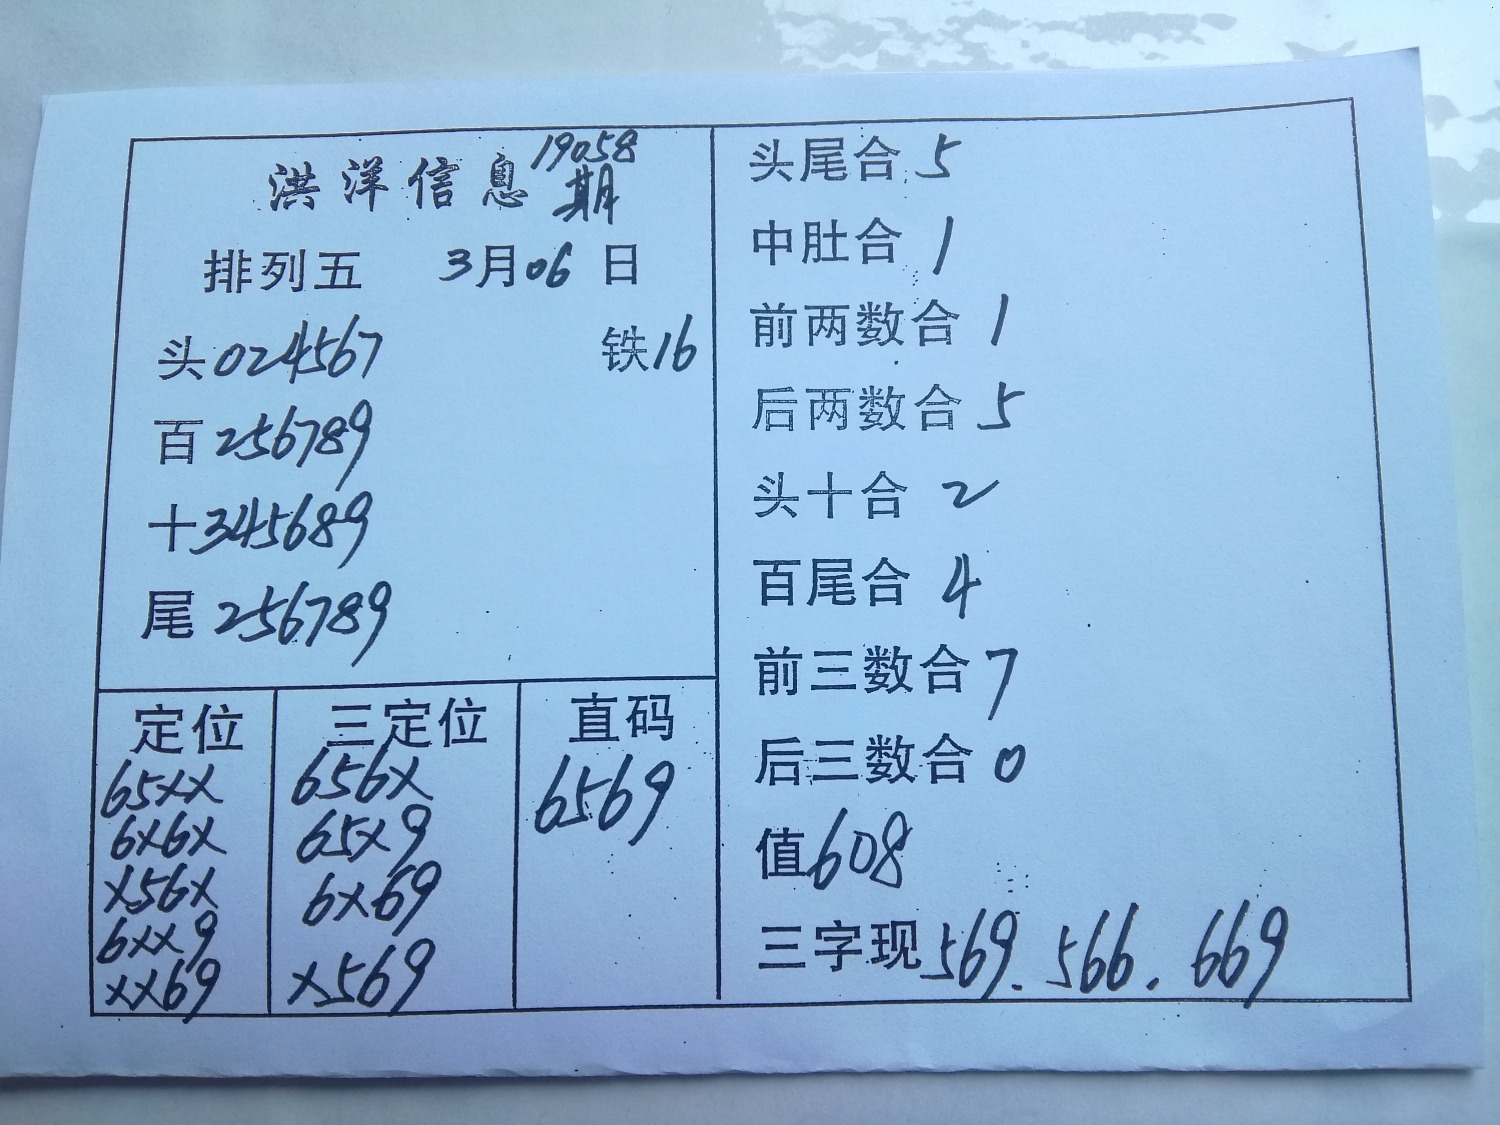 洪洋信息 19058
期
排列五 3月06日
头024567 铁16
百256789
十345689
尾256789
定位
65xx
6x6x
x56x
6xx9
xx69
三定位
656x
65x9
6x69
x569
直码
6569
头尾合 5
中肚合 1
前两数合 1
后两数合 5
头十合 2
百尾合 4
前三数合 7
后三数合 0
值608
三字现569.566.669